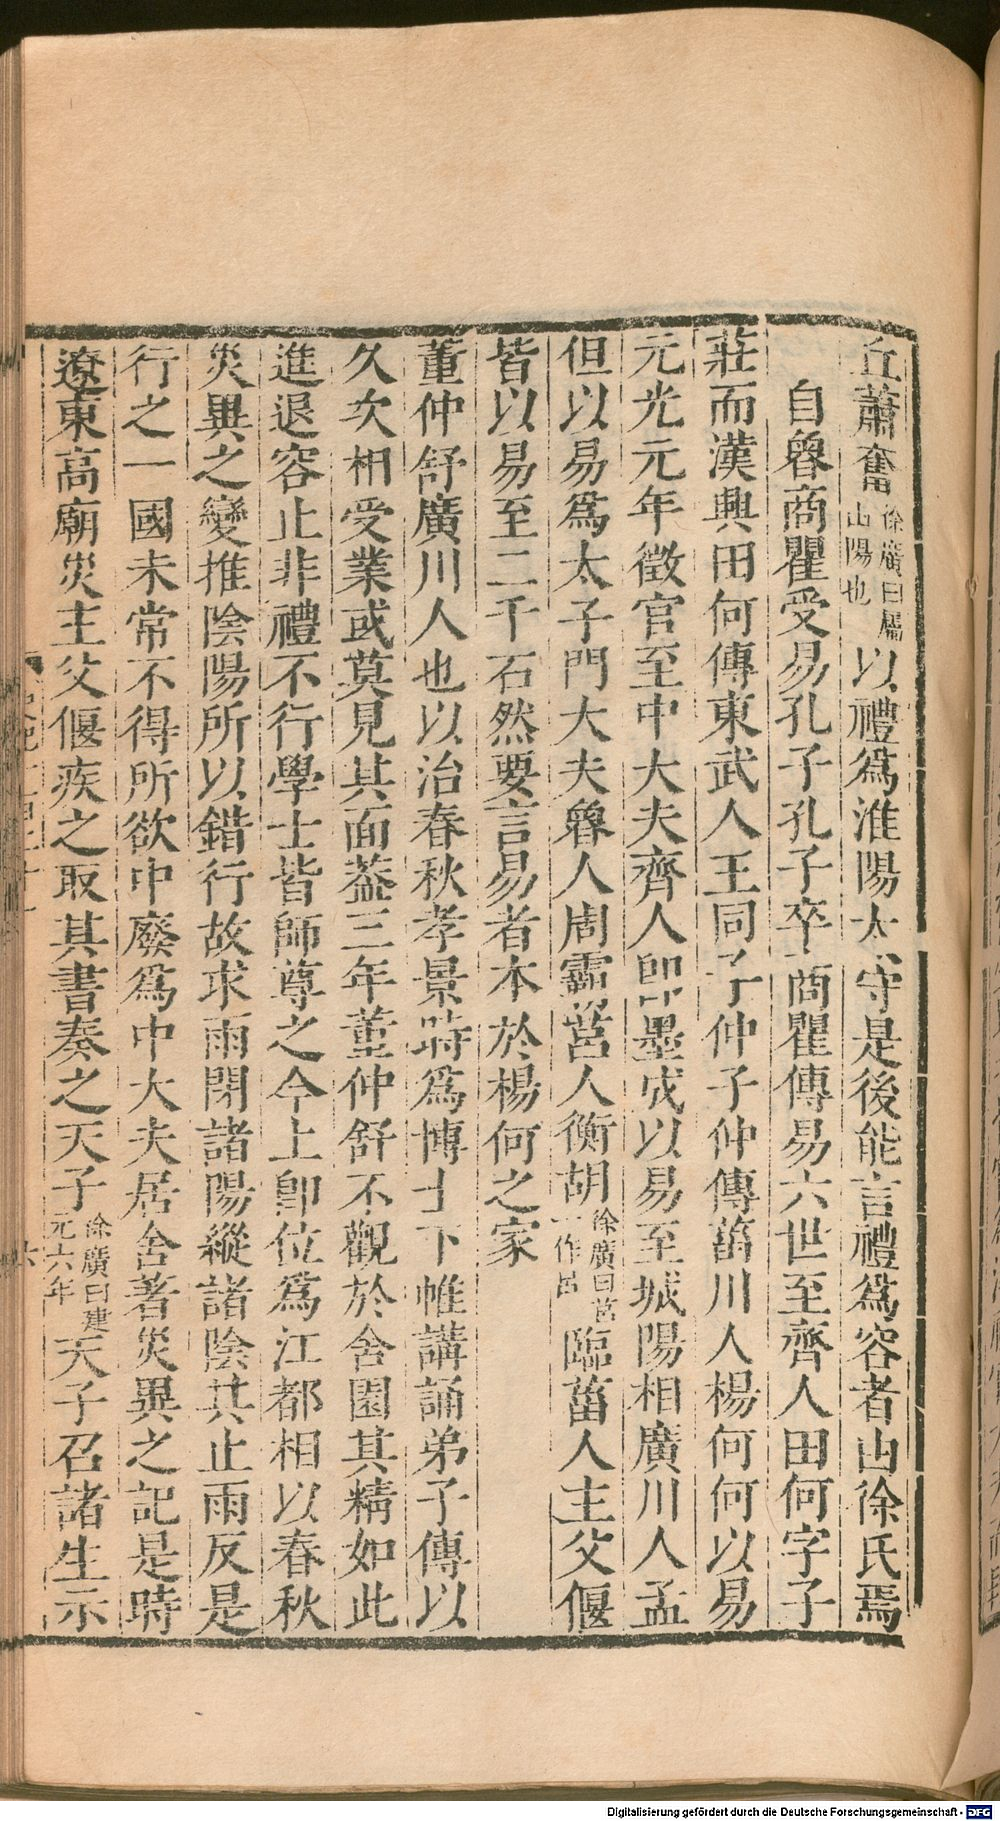 丘蕭奮徐廣曰屬山陽也以禮爲淮陽太守是後能言禮爲容者由徐氏焉
自魯商瞿受易孔子孔子卒商瞿傳易六世至齊人田何字子
莊而漢興田何傳東武人王同子仲子仲傳菑川人楊何何以易
元光元年徵官至中大夫齊人卽墨成以易至城陽相廣川人孟
但以易爲太子門大夫魯人周霸莒人衡胡徐廣曰莒一作呂臨菑人主父偃
皆以易至二千石然要言易者本於楊何之家
董仲舒廣川人也以治春秋孝景時爲博士下帷講誦弟子傳以
久次相受業或莫見其面蓋三年董仲舒不觀於舍園其精如此
進退容止非禮不行學士皆師尊之今上卽位爲江都相以春秋
災異之變推陰陽所以錯行故求雨閉諸陽縱諸陰其止雨反是
行之一國未常不得所欲中廢爲中大夫居舍著災異之記是時
遼東高廟災主父偃疾之取其書奏之天子徐廣曰建元六年天子召諸生示
Digitalisierung gefördert durch die Deutsche Forschungsgemeinschaft - DFG